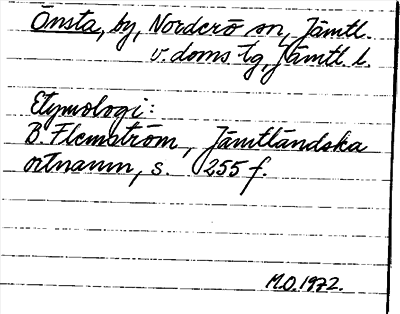 Önsta, by, Norderö sn, Jämtl.
v. doms. tg, Jämtl. l.
Etymologi:
B. Flemström, Jämtländska
ortnamn, s. 255 f.
M.O. 1972.